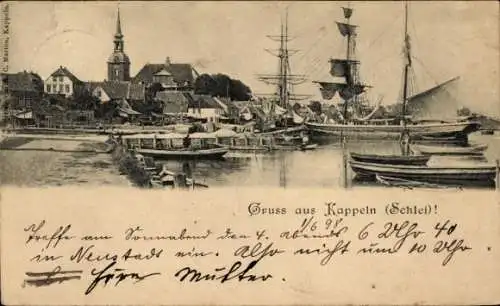 C. Martin, Kappeln.
Gruss aus Kappeln (Schlei)!
1/6 98
Treffe am Sonnabend den 4. abends 6 Uhr 40
in Neustadt ein. Also nicht um 10 Uhr
Eure Mutter